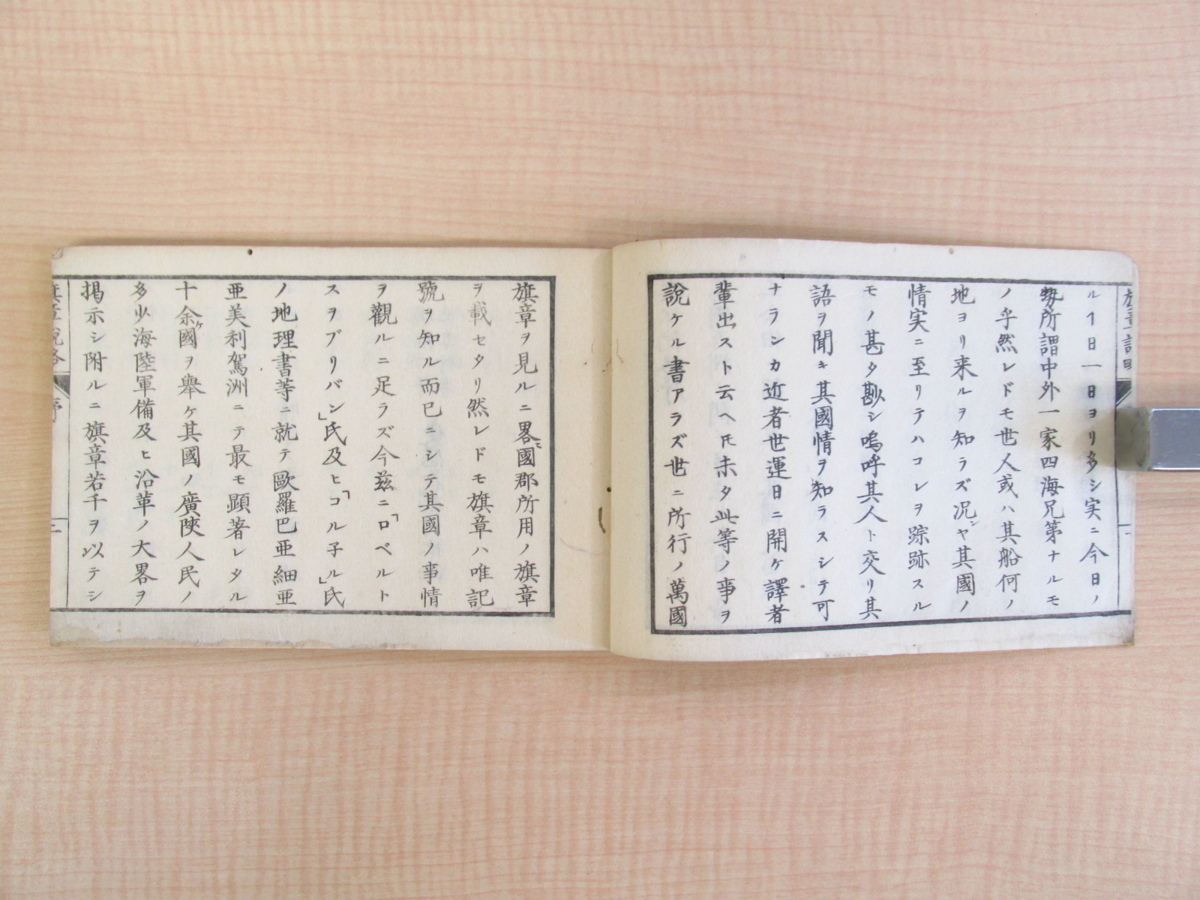 旗章説略
ル1日一日ヨリ多シ実ニ今日ノ
勢所謂中外一家四海兄第ナルモ
ノ乎然レドモ世人或ハ其船何ノ
地ヨリ来ルヲ知ラズ况ヤ其國ノ
情実ニ至リテハコレヲ踪跡スル
モノ甚タ尠シ嗚呼其人ト交リ其
語ヲ聞キ其國情ヲ知ラスシテ可
ナランカ近者世運日ニ開ケ譯者
輩出スト云ヘ𪜈未タ此等ノ事ヲ
說ケル書アラズ世ニ所行ノ萬國
旗章ヲ見ルニ畧國郡所用ノ旗章
ヲ載セタリ然レドモ旗章ハ唯記
號ヲ知ル而已ニシテ其國ノ事情
ヲ觀ルニ足ラズ今茲ニ「ロベルト
スヲブリバン」氏及ヒ「コル子ル」氏
ノ地理書等ニ就テ歐羅巴亜細亜
亜美利駕洲ニテ最モ顕著レタル
十余ケ國ヲ舉ケ其國ノ廣陜人民ノ
多少海陸軍備及ヒ沿革ノ大畧ヲ
掲示シ附ルニ旗章若千ヲ以テシ
旗章説略 序 二